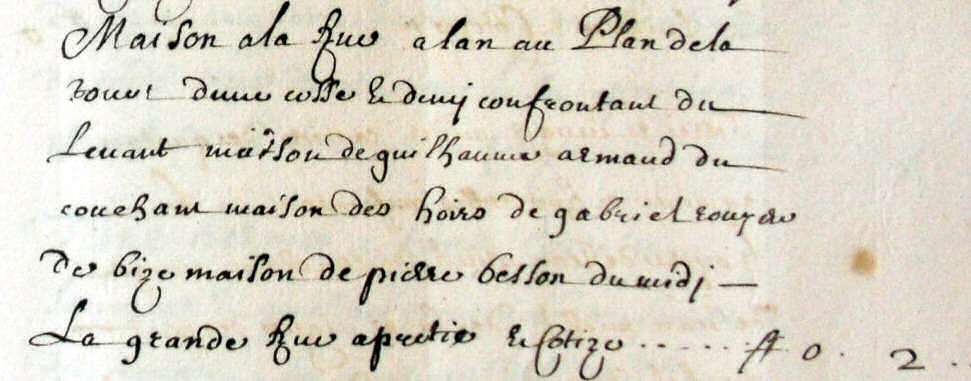 Maison ala Rue alan au Plan dela
dune cosse & demj confrontant du
Levant maison de guilhaume armand du
couchant maison des hoirs de gabriel
de bize maison de pierre besson du midj
La grande Rue apretie & Cotize ..... ff 0. 2.